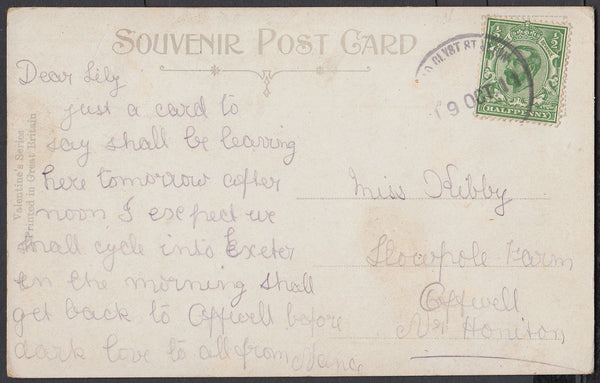 SOUVENIR POST CARD
Dear Lily
just a card to
say shall be leaving
here tomorrow after
noon I expect we
shall cycle into Exeter
in the morning shall
get back to Offwell before
dark love to all from
Miss Kibby
Farm
Offwell
Nr Honiton
Valentine's Series
Printed in Great Britain
ST
9 OCT
½ ½
HALFPENNY